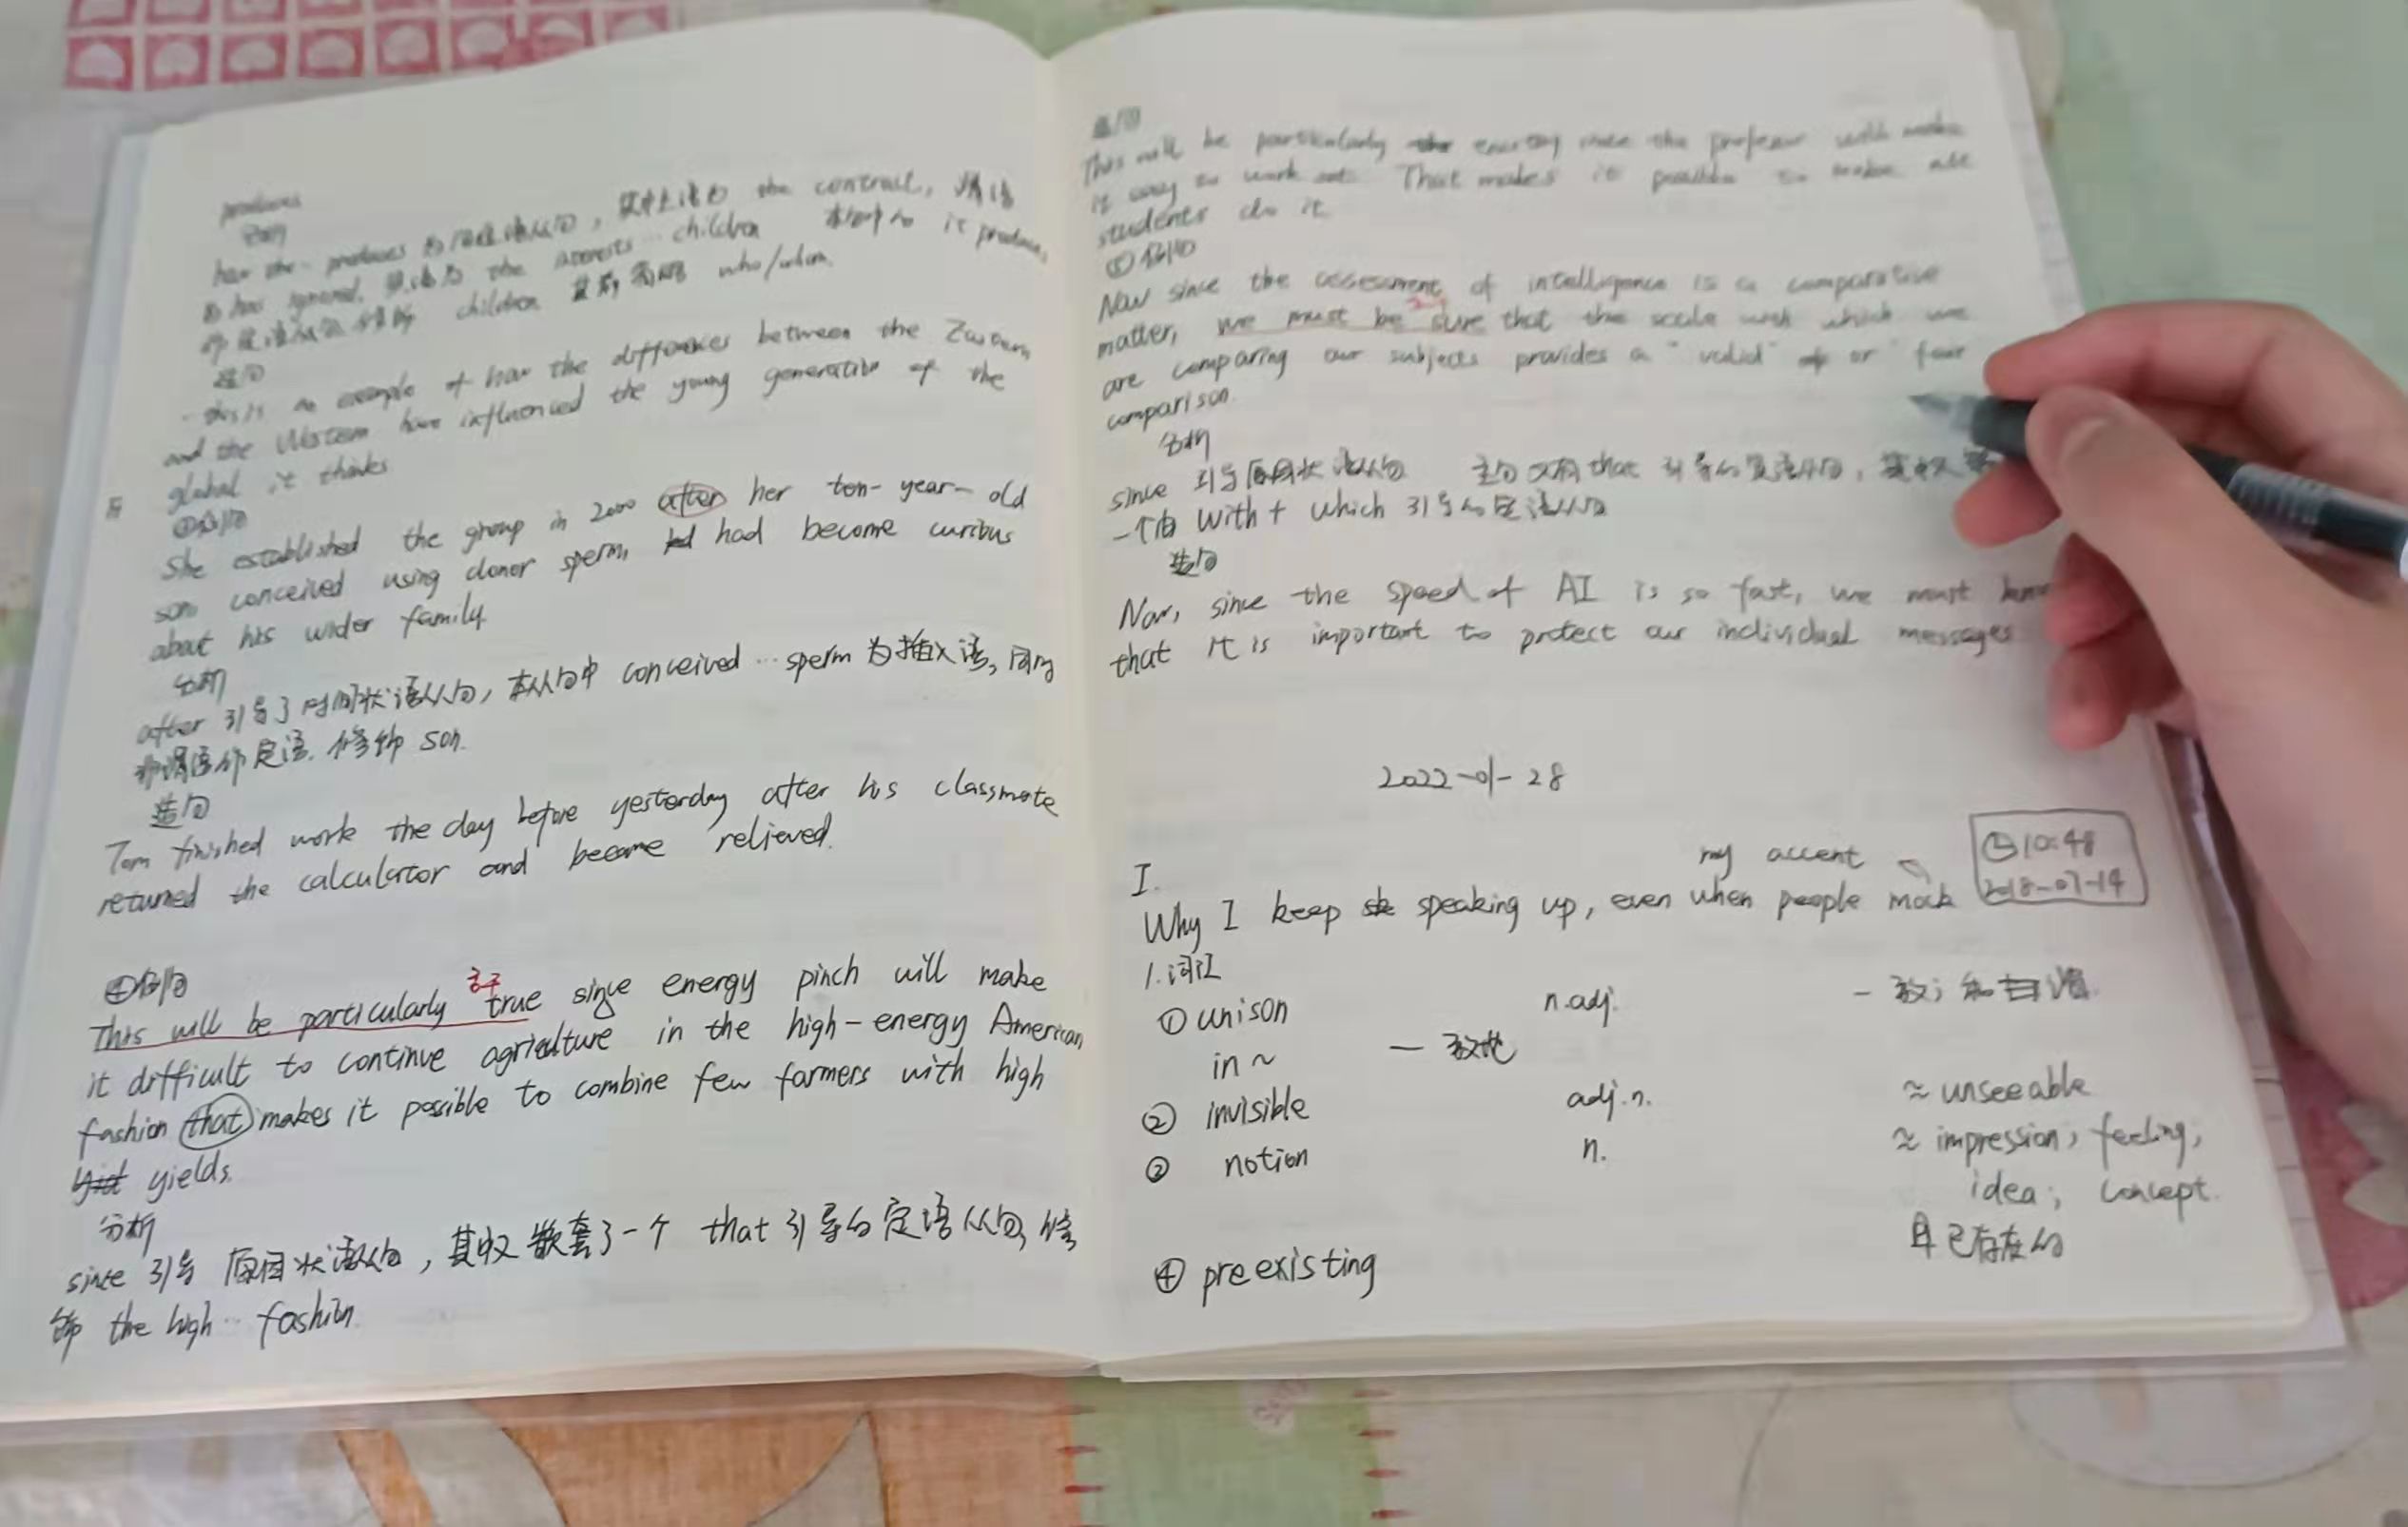 produces
分析
how the produces 为 the contract,
has ignored, the interests… children it produces
children who/whom
造句
this is an example of how the differences between the
and the Western have influenced the young generation of the
global it thinks
③例句
She established the group in 2000 after her ten-year-old
son conceived using donor sperm, had become curious
about his wider family.
分析
after 引导了时间状语从句,本从句中 conceived…sperm 为插入语,同时
非谓语作定语.修饰 son.
造句
Tom finished work the day before yesterday after his classmate
returned the calculator and became relieved.
④例句
主子
This will be particularly true since energy pinch will make
it difficult to continue agriculture in the high-energy American
fashion that makes it possible to combine few farmers with high
yields.
分析
since 引导原因状语从句,其中又嵌套了一个 that 引导的定语从句,修
饰 the high… fashion.
造句
This will be particularly since the professor will make
it easy to work out. That makes it possible to make all
students do it
⑤例句
Now since the assessment of intelligence is a comparative
matter, we must be sure that the scale with which we
are comparing our subjects provides a "valid" or "fair
comparison.
分析
since 引导原因状语从句 主句又有 that 引导的宾语从句,其中又
一个由 with + which 引导的定语从句
造句
Now, since the speed of AI is so fast, we must know
that it is important to protect our individual messages
2022-01-28
my accent
10:48
2018-07-14
I.
Why I keep speaking up, even when people mock
1.词汇
① unison n.adj. 一致;
in ~ 一致地
② invisible adj.n. ≈ unseeable
③ notion n. ≈ impression; feeling;
idea; concept.
④ preexisting 早已存在的